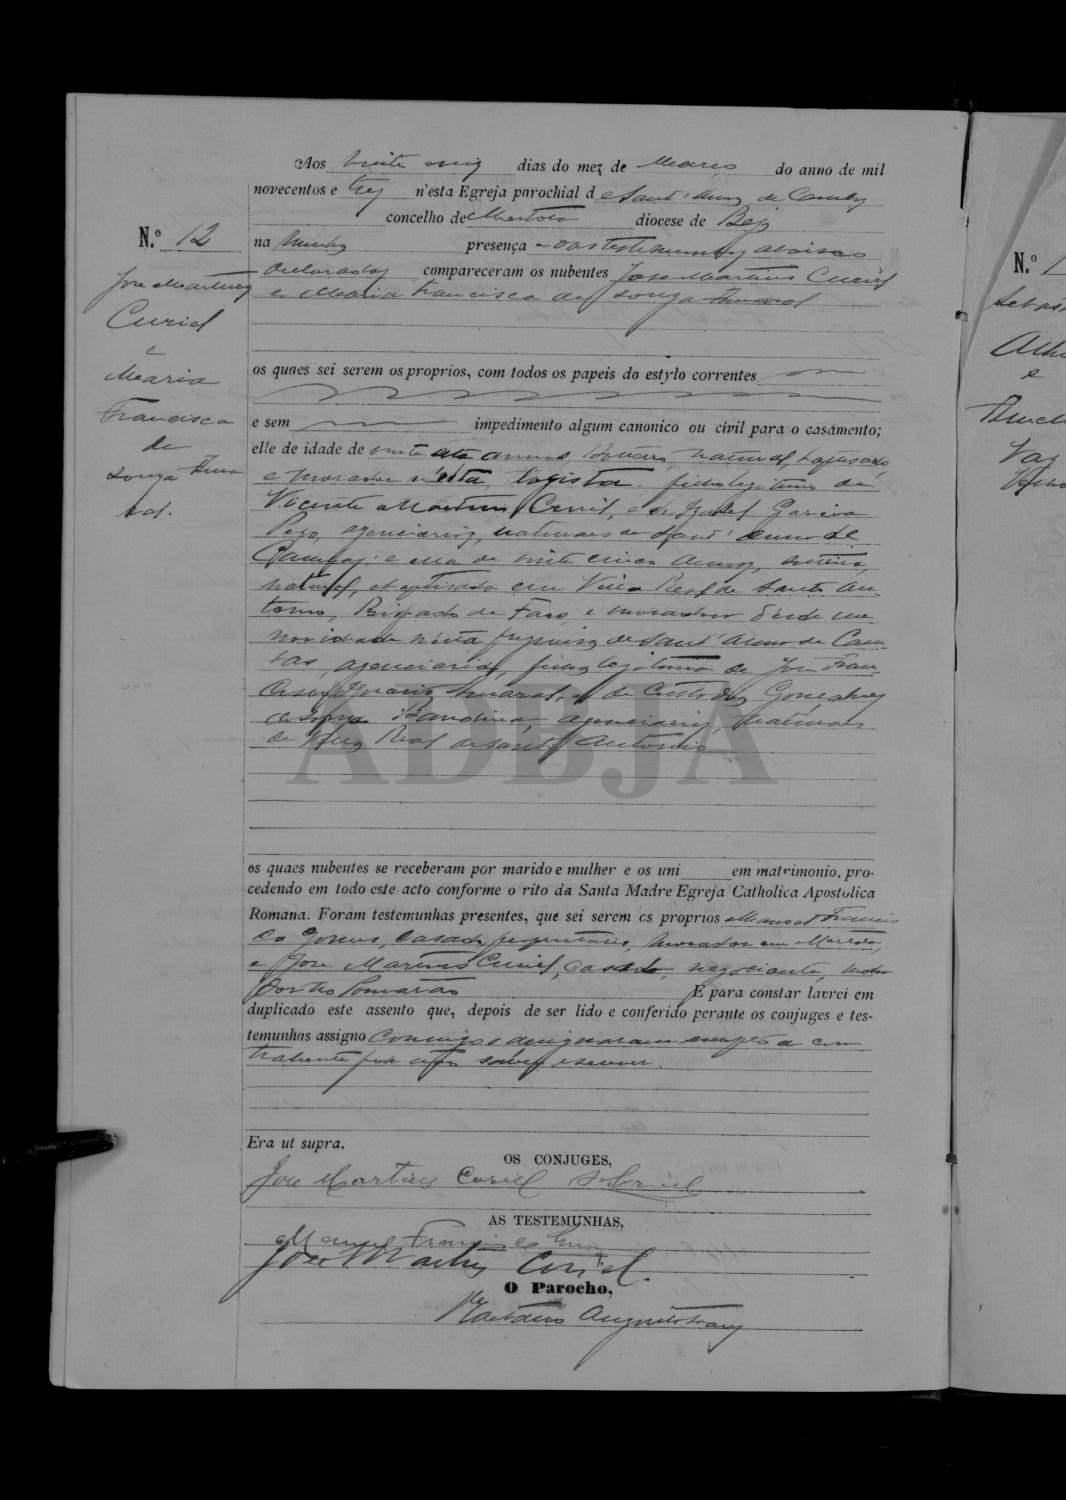 Aos vinte seis dias do mez de Março do anno de mil
novecentos e tres n'esta Egreja parochial de Sant'Anna de Cambas
concelho de Mertola diocese de Beja
N.º 12
na minha presença e das testemunhas abaixo
declaradas compareceram os nubentes José Martins Curiel
e Maria Francisca de Souza Amaral
José Martins
Curiel
e
Maria
Francisca
de
Souza Ama
ral.
os quaes sei serem os proprios, com todos os papeis do estylo correntes
e sem impedimento algum canonico ou civil para o casamento;
elle de idade de vinte annos, solteiro, natural, baptisado,
e morador n'esta, logista, filho legitimo de
Vicente Martins Curiel, e de Izabel Garcia
Pego, agenciarios, naturaes de Sant'Anna de
Cambas; e ella de vinte cinco annos, solteira,
natural, e baptisada em Villa Real de Santo An-
tonio, Bispado de Faro, e moradora desde me-
noridade n'esta freguezia de Sant'Anna de Cam-
bas, agenciaria, filha legitima de José Fran-
cisco Ignacio Amaral, e de Custodia Gonçalves
de Souza Bandeira, agenciarios, naturaes
de Villa Real de Santo Antonio
ADBJA
os quaes nubentes se receberam por marido e mulher e os uni em matrimonio, pro-
cedendo em todo este acto conforme o rito da Santa Madre Egreja Catholica Apostolica
Romana. Foram testemunhas presentes, que sei serem os proprios Manoel Francis
co Gomes, casado, proprietario, morador em Mertola,
e José Martins Curiel, casado, negociante, mora
Pomarão E para constar lavrei em
duplicado este assento que, depois de ser lido e conferido perante os conjuges e tes-
temunhas assigno comigo e assignaram excepto a con
trahente por não saber escrever.
Era ut supra.
OS CONJUGES,
José Martins Curiel
AS TESTEMUNHAS,
Manuel Francisco Gomes
José Martins Curiel.
O Parocho,
Augusto
N.º 1
Sebast
e